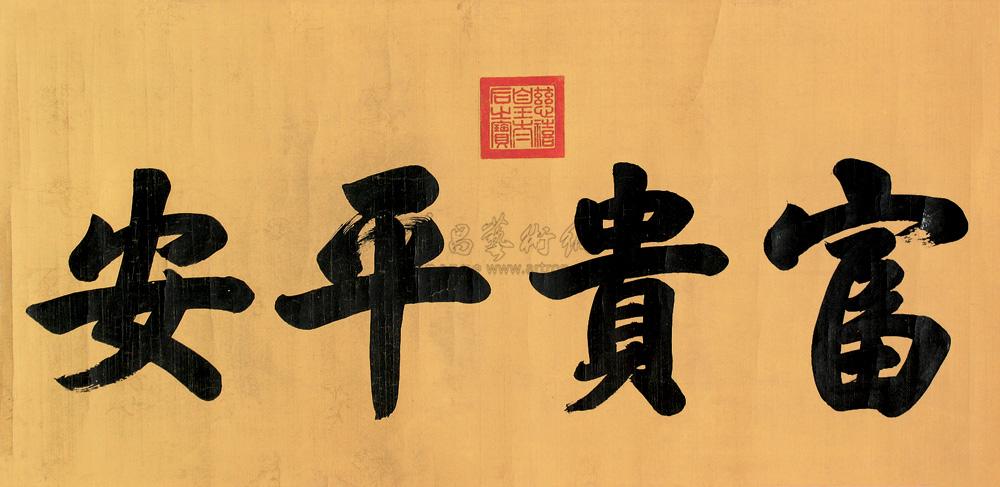 富貴平安
慈禧
皇太
后之寶
昌藝術網
www.artr